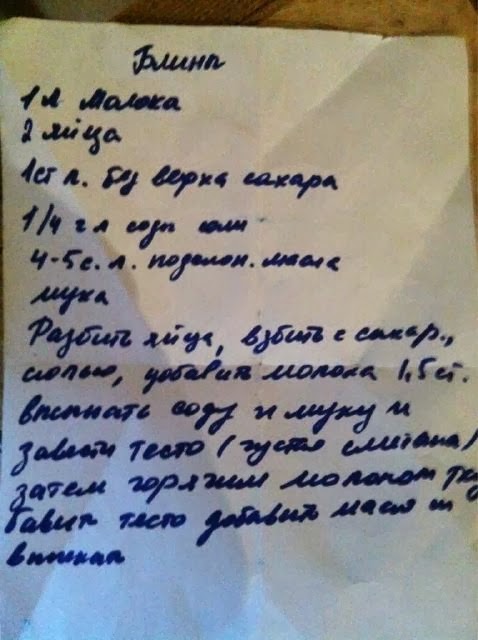 Блины
1 л молока
2 яйца
1 ст л. без верха сахара
1/4 ч л соды соли
4-5 с. л. подсолн. масла
мука
Разбить яйца, взбить с сахар.,
солью, добавить молока 1,5 ст.
всыпать соду и муку и
завести тесто (густая сметана)
затем горячим молоком раз
бавить тесто добавить масло и